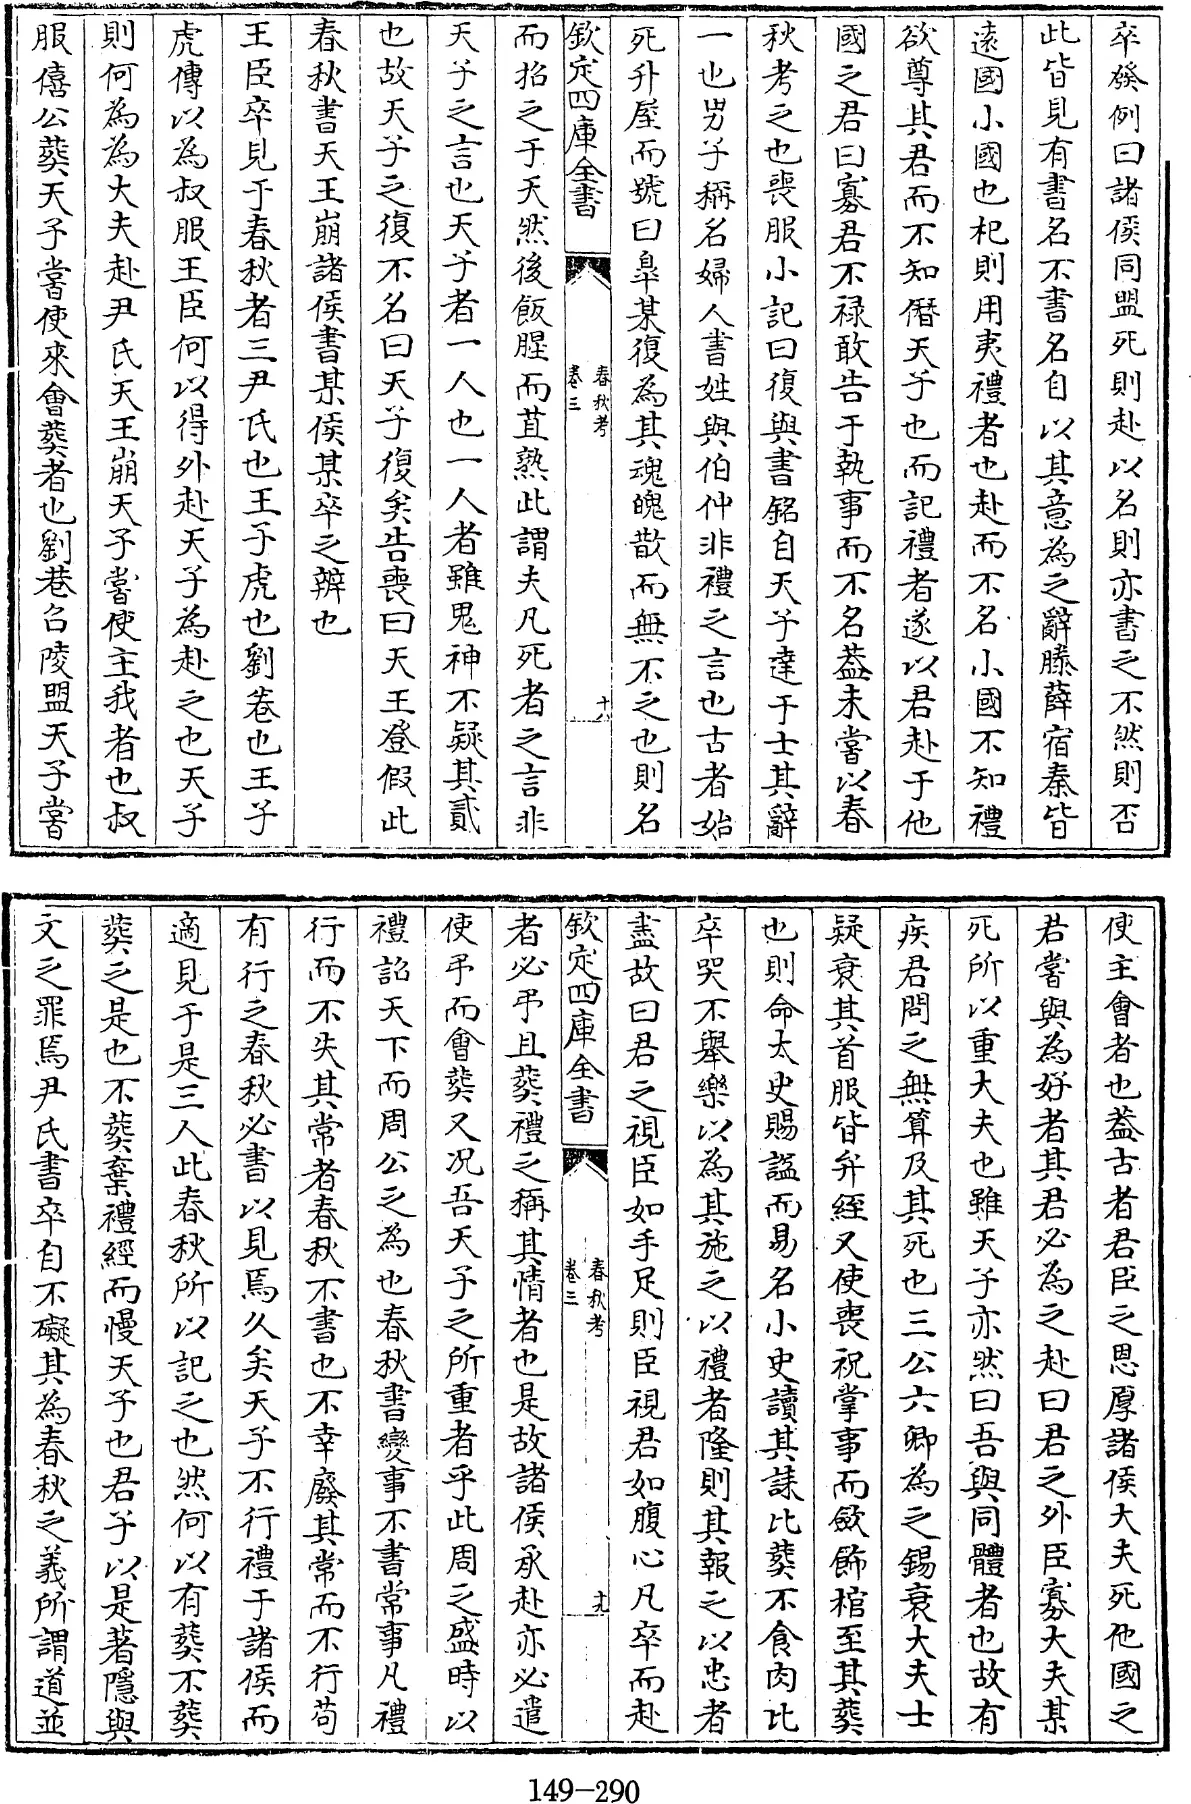 卒發例曰諸侯同盟死則赴以名則亦書之不然則否
此皆見有書名不書名自以其意為之辭滕薛宿秦皆
逺國小國也杞則用夷禮者也赴而不名小國不知禮
欲尊其君而不知僭天子也而記禮者遂以君赴于他
國之君曰寡君不祿敢告于執事而不名葢未嘗以春
秋考之也喪服小記曰復與書銘自天子達于士其辭
一也男子稱名婦人書姓與伯仲非禮之言也古者始
死升屋而號曰臯某復為其魂魄散而無不之也則名
欽定四庫全書
春秋考
卷三
十八
而招之于天然後飯腥而苴熟此謂夫凡死者之言非
天子之言也天子者一人也一人者雖鬼神不疑其貳
也故天子之復不名曰天子復矣告喪曰天王登假此
春秋書天王崩諸侯書某侯某卒之辨也
王臣卒見于春秋者三尹氏也王子虎也劉卷也王子
虎傳以為叔服王臣何以得外赴天子為赴之也天子
則何為為大夫赴尹氏天王崩天子嘗使主我者也叔
服僖公葬天子嘗使來會葬者也劉卷召陵盟天子嘗
使主會者也葢古者君臣之恩厚諸侯大夫死他國之
君嘗與為好者其君必為之赴曰君之外臣寡大夫某
死所以重大夫也雖天子亦然曰吾與同體者也故有
疾君問之無算及其死也三公六卿為之錫衰大夫士
疑衰其首服皆弁絰又使喪祝掌事而斂飾棺至其葬
也則命太史賜諡而易名小史讀其誄比葬不食肉比
卒哭不舉樂以為其施之以禮者隆則其報之以忠者
盡故曰君之視臣如手足則臣視君如腹心凡卒而赴
欽定四庫全書
春秋考
卷三
十九
者必弔且葬禮之稱其情者也是故諸侯承赴亦必遣
使弔而會葬又况吾天子之所重者乎此周之盛時以
禮詔天下而周公之為也春秋書變事不書常事凡禮
行而不失其常者春秋不書也不幸廢其常而不行苟
有行之春秋必書以見焉久矣天子不行禮于諸侯而
適見于是三人此春秋所以記之也然何以有葬不葬
葬之是也不葬棄禮經而慢天子也君子以是著隱與
文之罪焉尹氏書卒自不礙其為春秋之義所謂道並
149-290